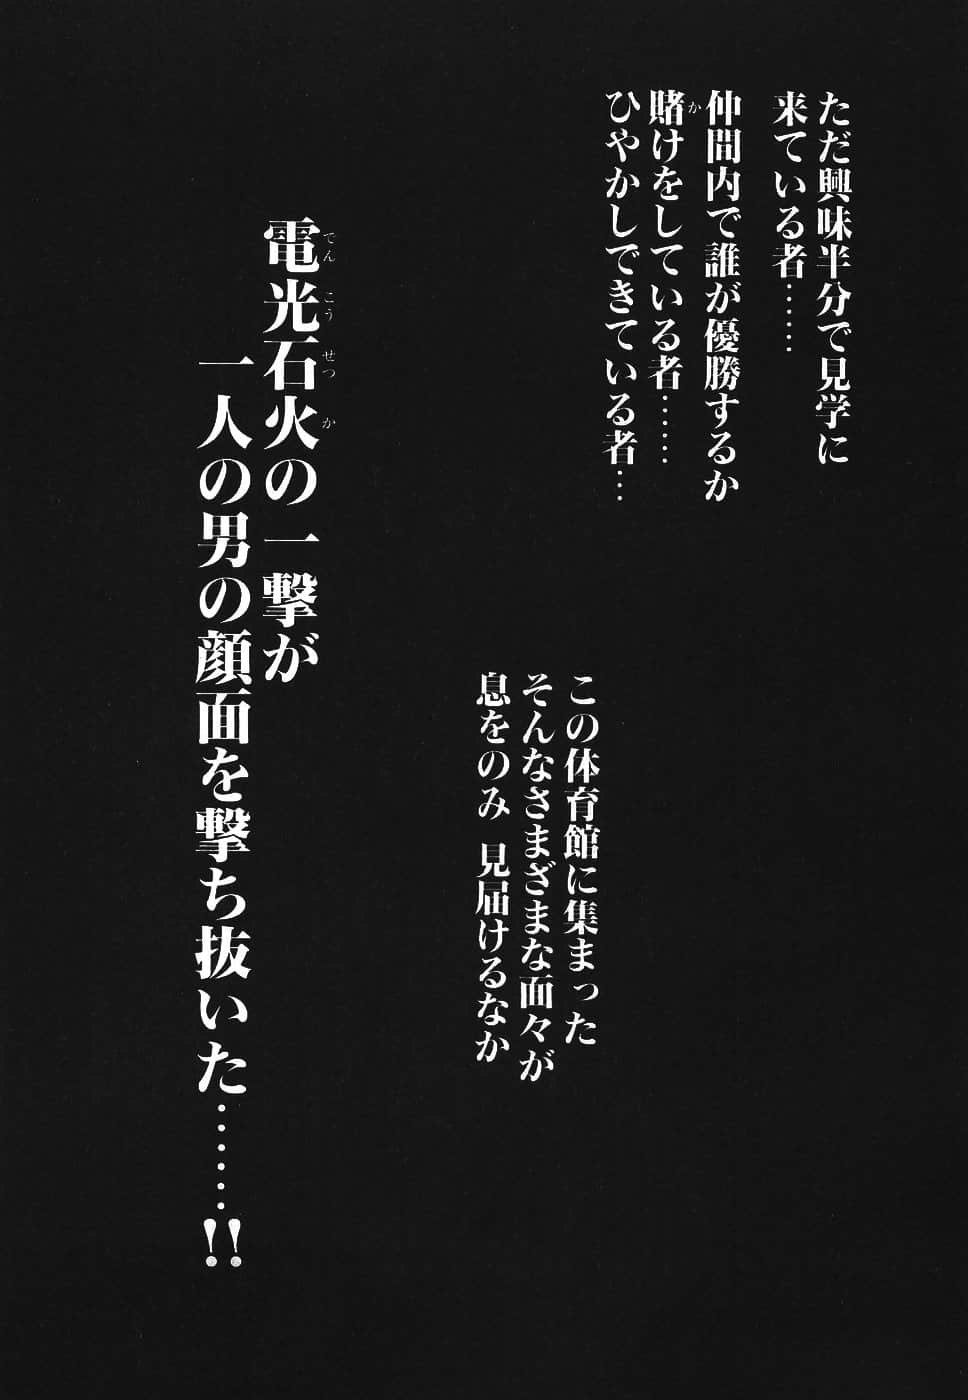 ただ興味半分で見学に
来ている者……
仲間内で誰が優勝するか
賭けをしている者……
ひやかしできている者…
この体育館に集まった
そんなさまざまな面々が
息をのみ 見届けるなか
電光石火の一撃が
一人の男の顔面を撃ち抜いた……!!